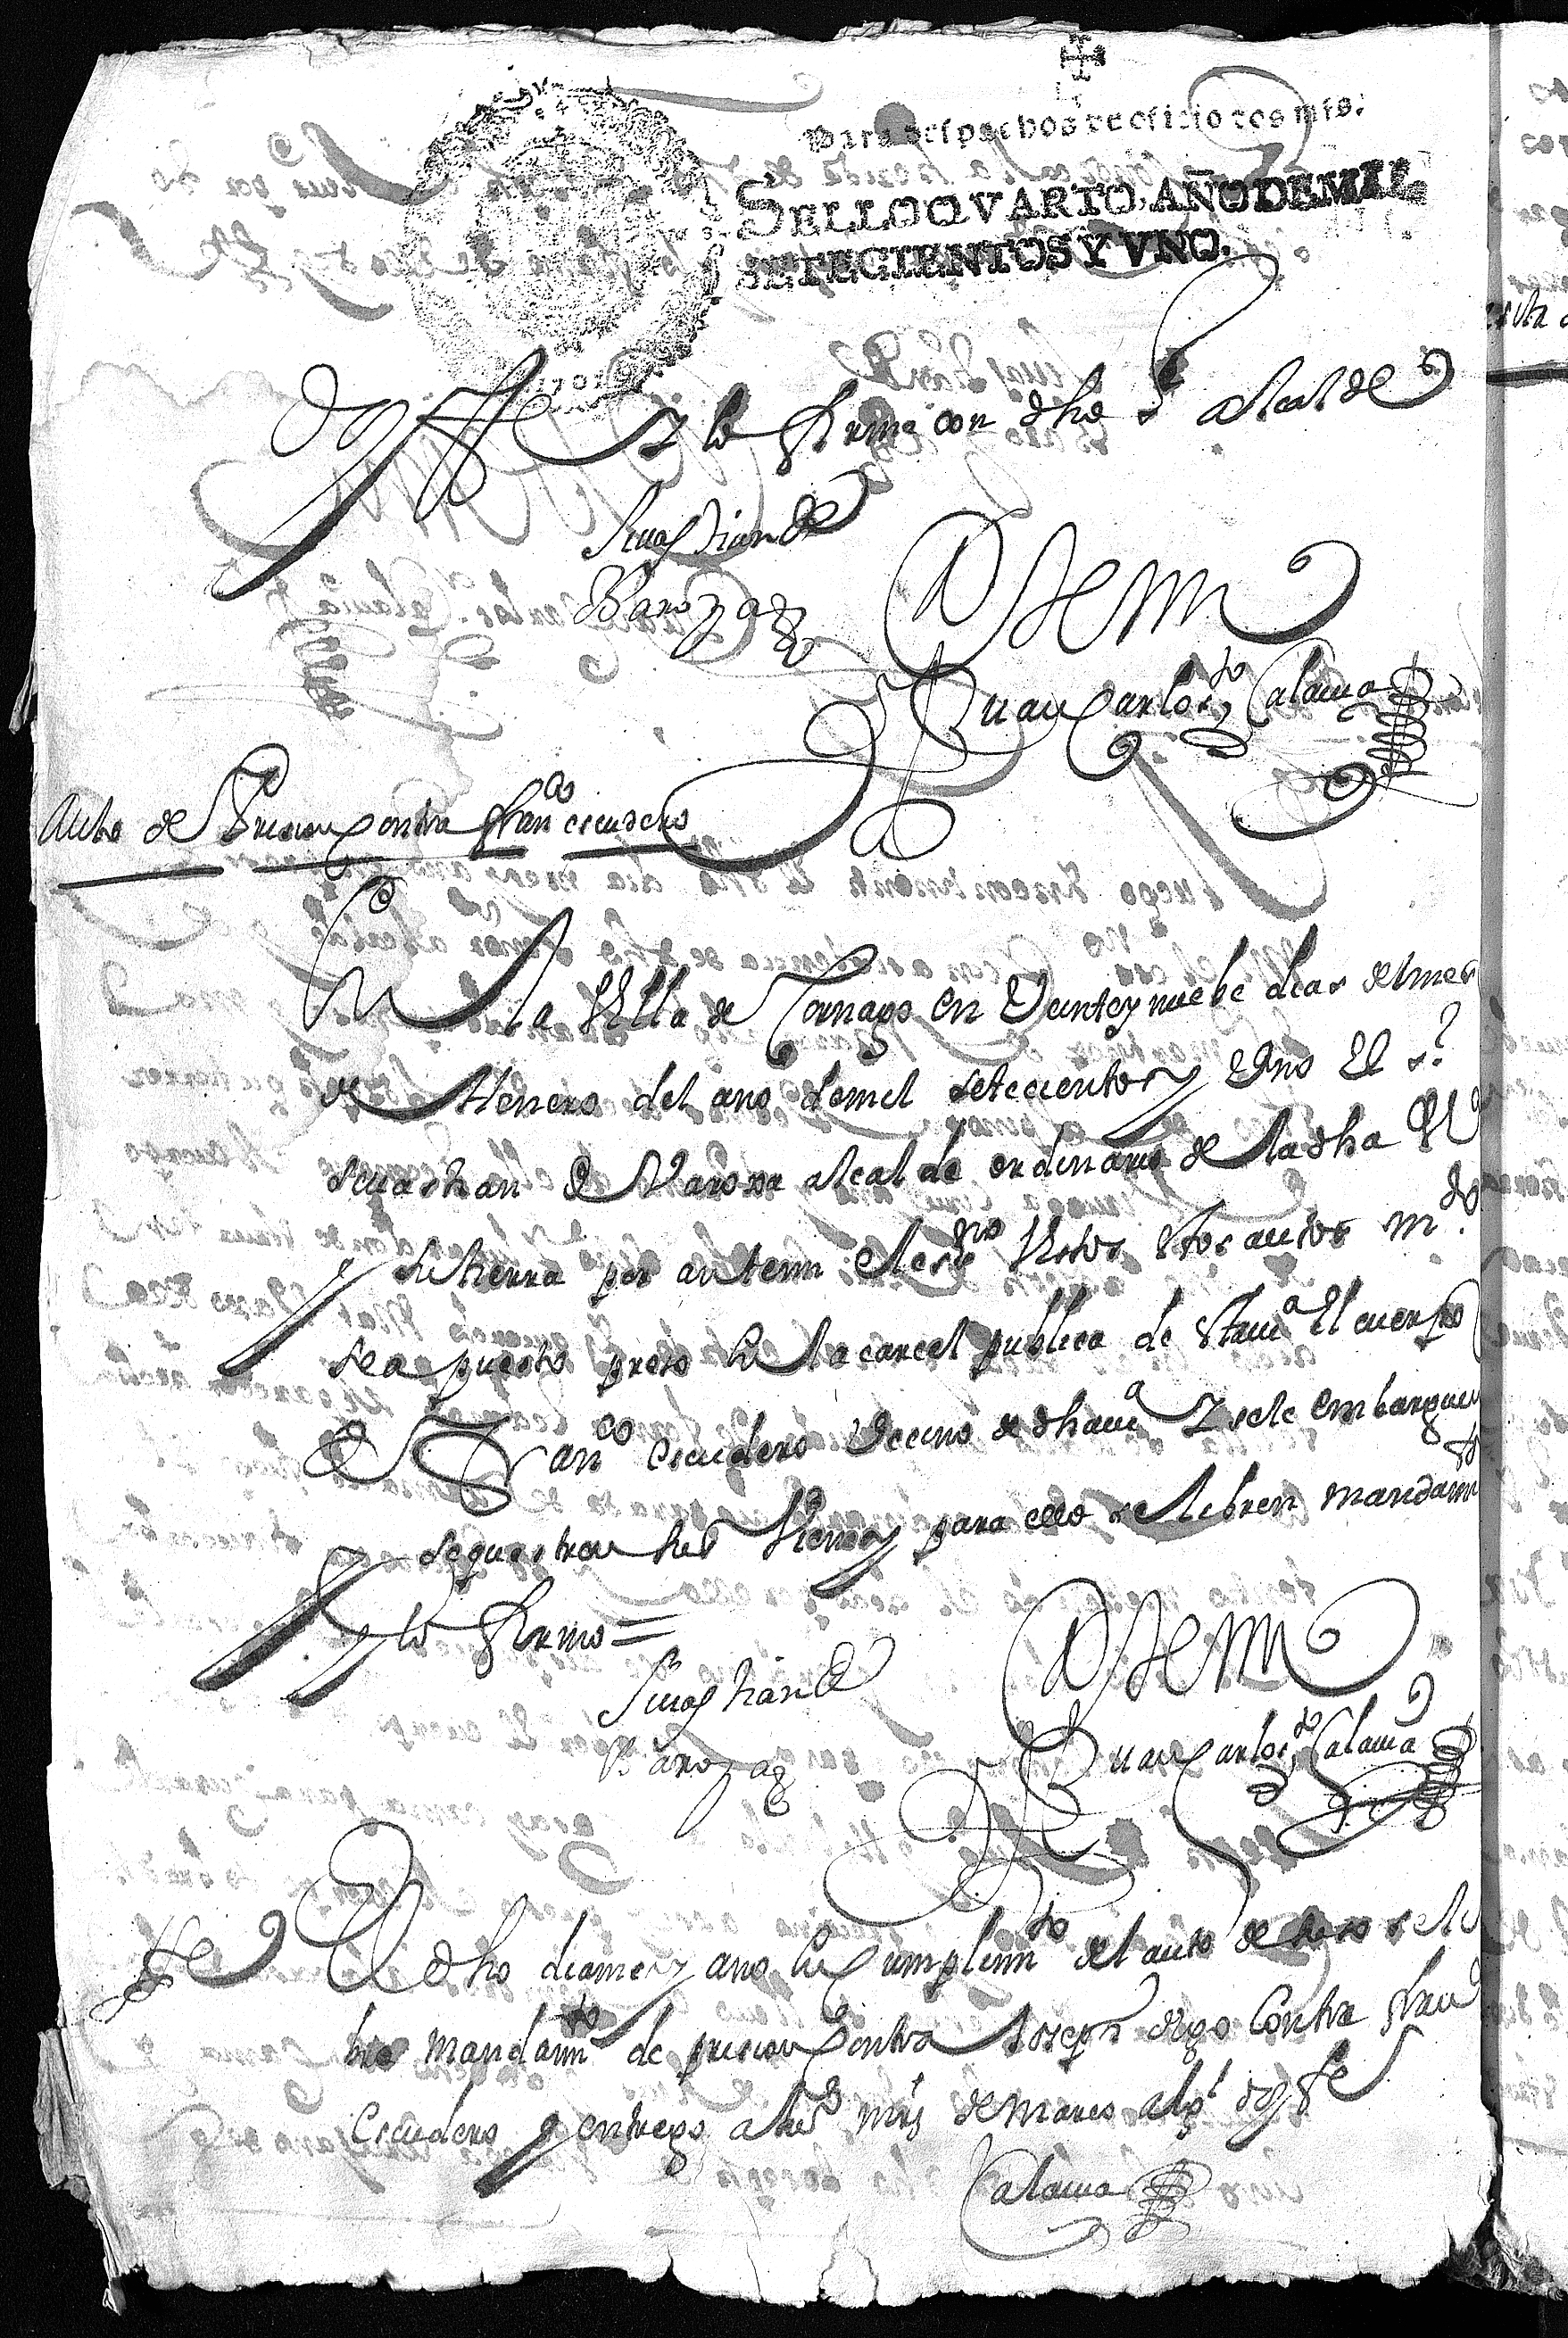 Para despachos de oficio dos mrs.
SELLO QVARTO, AÑO DE MIL
SETECIENTOS Y VNO.
Doyffe y lo firme con dho Sr alcalde
Seuastian de
Baroza
Ante mi
Juan Carlos Calauia
Auto de Prision contra franco escudero
En la Villa de Cornago en Veinte y nuebe dias del mes
de Henero del ano de mil setecientos y Vno El sr
seuastian de Varoza alcalde ordinario de la dha Va
y su tierra por ante mi el essno Vistos estos autos mdo
sea puesto preso en la carcel publica de sta va El cuerpo
de Franco escudero Vecino de dha va y se le embarguen
y sequestren sus Vienes y para ello se libren mandamtos
y lo firmo =
Seuastian de
Baroza
Ante mi
Juan Carlos Calauia
ffe
El dho dia mes y ano en cumplimto del auto de suso se li
bro mandamto de prision contra Joseph digo Contra franco
Escudero y entrego a
de Marco doy fe
Calauia